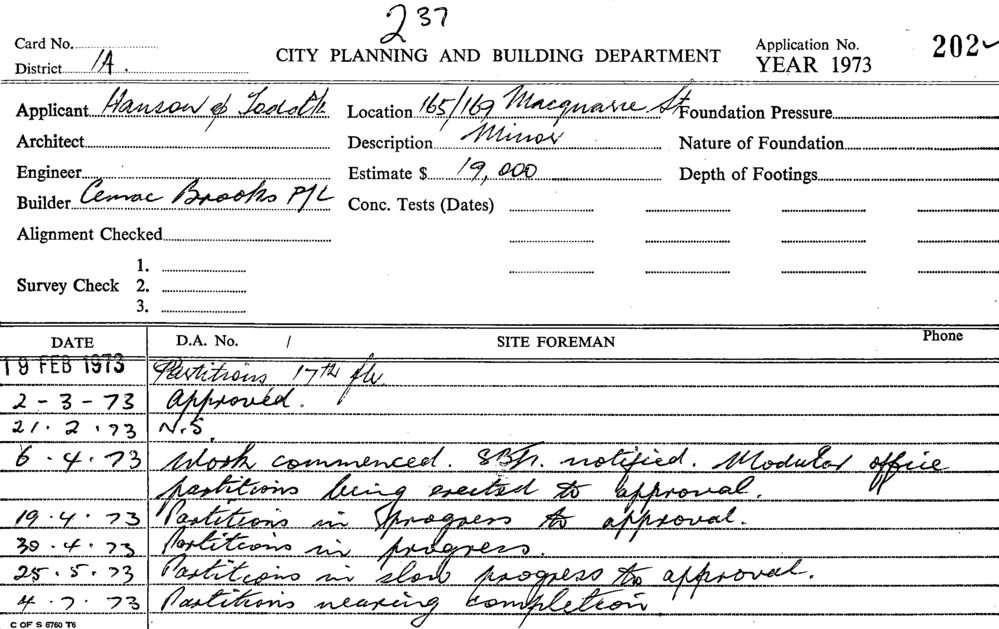 237
Card No.
CITY PLANNING AND BUILDING DEPARTMENT
Application No. 202
YEAR 1973
District 1A.
Applicant Hanson & Location 165/169 Macquarie St Foundation Pressure
Architect Description Minor Nature of Foundation
Engineer Estimate $ 19,000 Depth of Footings
Builder Cemac Brooks P/L Conc. Tests (Dates)
Alignment Checked
1.
Survey Check 2.
3.
DATE D.A. No. / SITE FOREMAN Phone
19 FEB 1973 Partitions 17th flr
2-3-73 Approved.
21.2.73 N.S.
6.4.73 Work commenced. notified. Modular office
partitions being erected to approval.
19.4.73 Partitions in progress to approval.
30.4.73 Partitions in progress.
25.5.73 Partitions in slow progress to approval.
4.7.73 Partitions nearing completion
C OF S 6760 T6